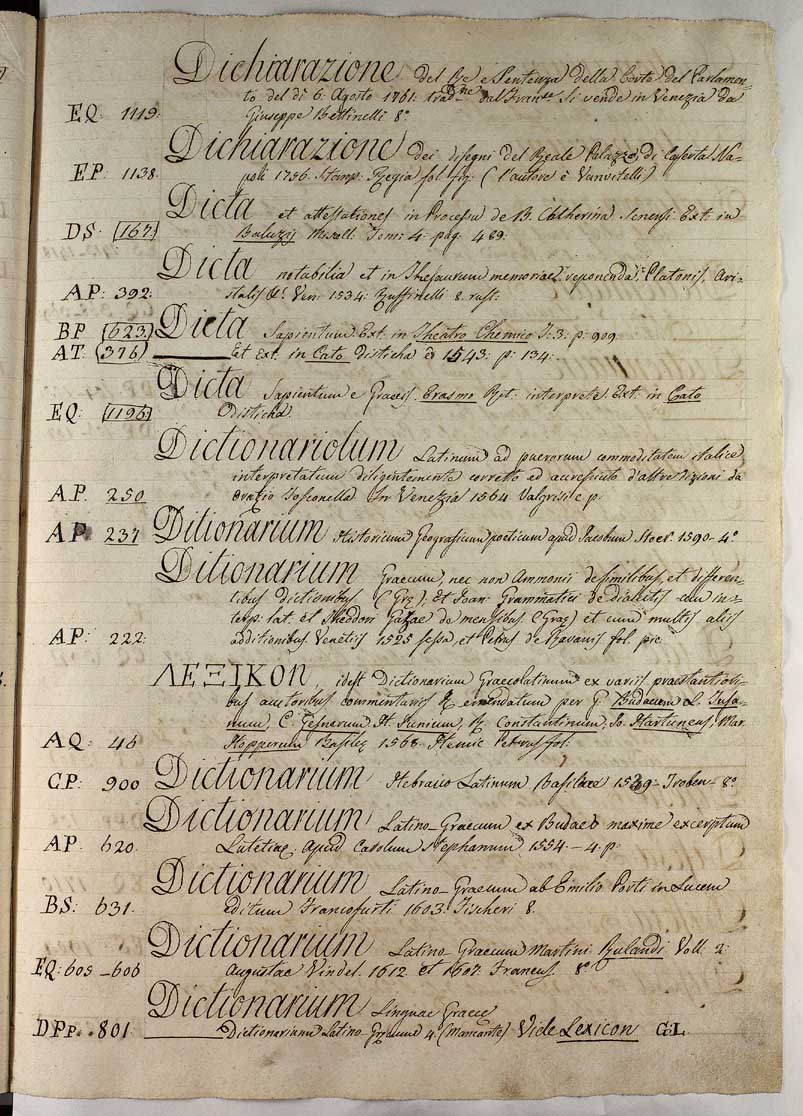 Dichiarazione del Re e Sentenza della Corte del Parlamen-
to del dì 6. Agosto 1761. trad.ne dal Franse. Si vende in Venezia da
EQ. 1119. Giuseppe Bettinelli 8.o
Dichiarazione dei disegni del Reale Palazzo di Caserta Na-
EP. 1138. poli 1756. Stamp. Regia fol. fig. (l'autore è Vanvitelli)
Dicta et attestationes in Processu de B. Catherina Senensi. Ext. in
DS. 167. Baluzij Miscell. Tom: 4. pag. 489.
Dicta notabilia et in Thesaurum memoriae reponenda, Platonis, Ari-
AP. 392. stolis &c. Ven: 1534. Ruffinelli 8. rust.
BP. 623. Dicta Sapientum. Ext. in Theatro Chemico T: 3. p: 909.
AT. 376. Et Ext. in Cato Disticha 1543. p: 134.
Dicta Sapientum e Graecis. Erasmo Rot. interprete. Ext. in Cato
EQ. 1196. Disticha.
Dictionariolum Latinum ad puerorum commoditatem italice
interpretatum diligentemente corretto ed accresciuto d'altre dizioni da
A.P. 250 Orazio Toscanella In Venezia 1564 Valgrisi p.
AP. 237 Ditionarium Historicum Geograficum poeticum apud Jacobum Stoer. 1590 - 4.o
Ditionarium Graecum, nec non Ammonii de similibus, et differen-
tibus dictionibus (Grę), et Joan: Grammatici de dialectis cum in-
terp: lat. et Theodori Gazae de mensibus (Gręę) et cum multis aliis
AP. 222. additionibus. Venetiis 1525 Sessa, et Petrus de Ravanis fol. pic.
ΛΕΞΙΚΟΝ, idest Dictionarium Graecolatinum ex variis praestantiori-
bus auctoribus commentariis & emendatum per G. Budaeum L. Tusa-
num, C. Gesnerum H. Junium, R. Constantinum, Jo. Hartungus, Mar.
AQ. 46 Hopperum Basileę 1568. Henric Petrus fol.
CP. 900 Dictionarium Hebraico Latinum. Basileae 1539 Froben - 8.o
Dictionarium Latino-Graecum ex Budaeo maxime excerptum
AP. 620. Lutetiae, apud Carolum Stephanum 1554 - 4. p.
Dictionarium Latino-Graecum ab Emilio Porti in Lucem
BS: 631. editum Francofurti 1603. Fischeri 8.
Dictionarium Latino Graecum Martini Rulandi Voll. 2.
EQ: 605 - 606 Augustae Vindel. 1612 et 1607. Francus. 8.o
Dictionarium Linguae Graecę
DPp. 801. Dictionarium Latino Gręcum 4. (Mancante) Vide Lexicon G:L.